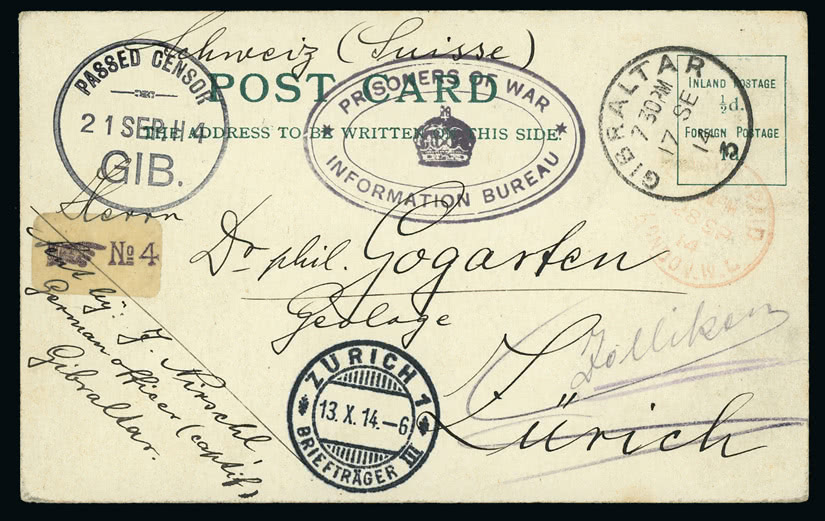 Schweiz (Suisse)
POST CARD
THE ADDRESS TO BE WRITTEN ON THIS SIDE.
PASSED CENSOR
21 SEP. 14
GIB.
PRISONERS OF WAR
INFORMATION BUREAU
GIBRALTAR
7 30 PM
17 SE
14
INLAND POSTAGE
½d.
FOREIGN POSTAGE
1d.
PAID
LONDON
28 SP
14
Herrn
No 4
Dr. phil. Gogarten
Geologe
Zollikon
Zürich
Sent by: J. Nirschl,
German officer (captif)
Gibraltar.
ZÜRICH 1
13. X. 14.-6
BRIEFTRÄGER III